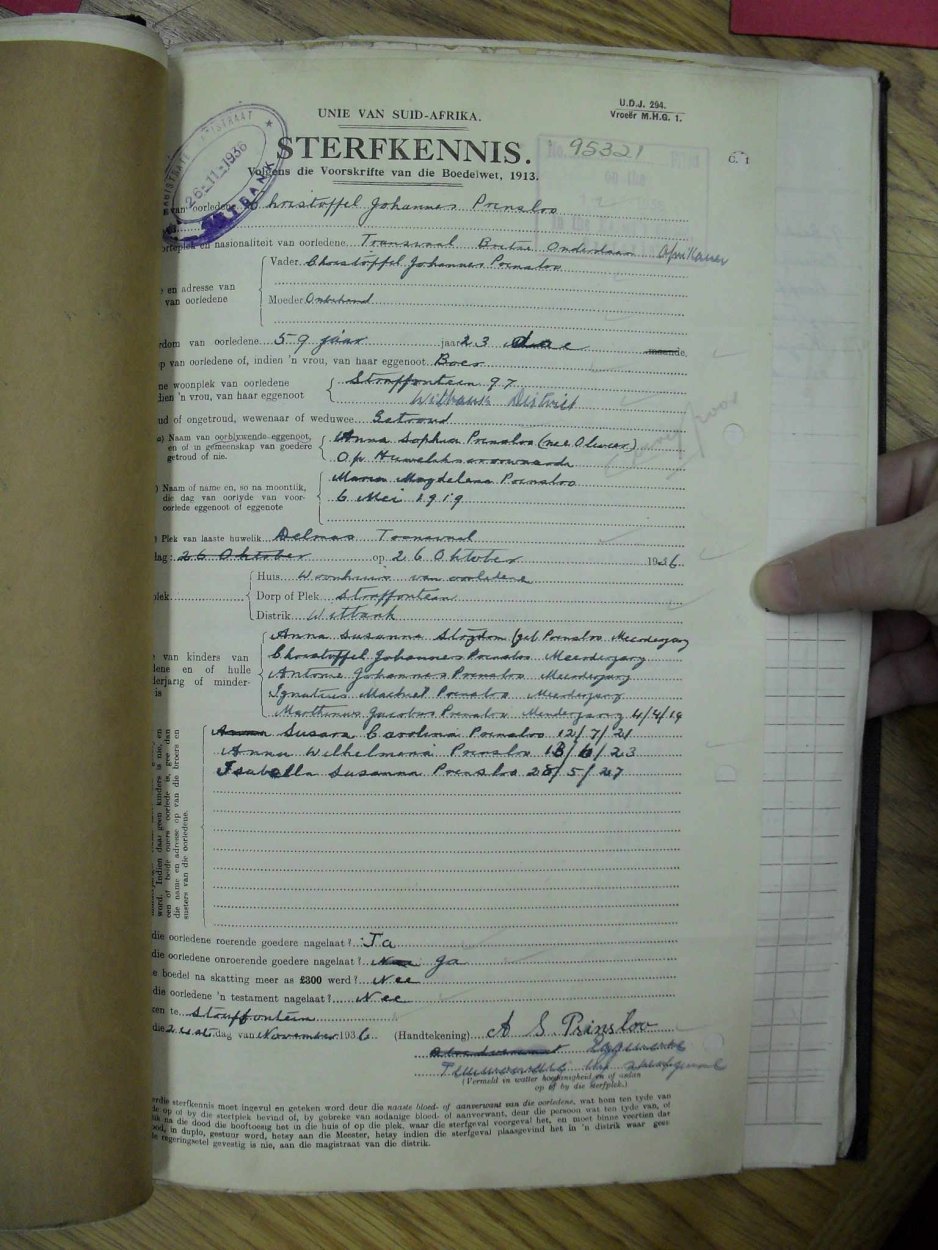 U.D.J. 294.
Vroeër M.H.G. 1.
UNIE VAN SUID-AFRIKA.
STERFKENNIS. 95321
G. 1
Volgens die Voorskrifte van die Boedelwet, 1913.
26-11-1936
van oorledene Christoffel Johannes Prinsloo
en nasionaliteit van oorledene Transvaal Britse Onderdaan Afrikaner
Vader Christoffel Johannes Prinsloo
e en adresse van
van oorledene
Moeder Onbekend
van oorledene 59 jaar jaar 23 dae maande.
van oorledene of, indien 'n vrou, van haar eggenoot Boer
ne woonplek van oorledene
dien 'n vrou, van haar eggenoot
97
Witbank District
of ongetroud, wewenaar of weduwee Getroud
Naam van oorblywende eggenoot,
en of in gemeenskap van goedere
getroud of nie.
Anna Sophia Prinsloo (nee Olivier)
Op Huweliksvoorwaarde
Naam of name en, so na moontlik,
die dag van oorlyde van voor-
oorlede eggenoot of eggenote
Maria Magdelena Prinsloo
6 Mei 1919
Plek van laaste huwelik Delmas Transvaal
26 Oktober op 26 Oktober 1936
Huis Woonhuis van oorledene
Dorp of Plek
Distrik Witbank
van kinders van
dene en of hulle
derjarig of minder-
is
Anna Susanna (geb Prinsloo Meerderjarig
Christoffel Johannes Prinsloo Meerderjarig
Antonie Johannes Prinsloo Meerderjarig
Ignatius Prinsloo Meerderjarig
Marthinus Jacobus Prinsloo Minderjarig 4/4/19
Anna Susara Carolina Prinsloo 12/7/21
Anna Wilhelmena Prinsloo 13/6/23
Isabella Susanna Prinsloo 28/5/27
word. Indien daar geen kinders is nie, en
een of beide ouers oorlede is, gee dan
die name en adresse op van die broers en
susters van die oorledene.
die oorledene roerende goedere nagelaat? Ja
die oorledene onroerende goedere nagelaat? Nee Ja
e boedel na skatting meer as £300 werd? Nee
die oorledene 'n testament nagelaat? Nee
en te
die dag van November 1936 (Handtekening) A S Prinsloo
(Vermeld in watter hoedanigheid en of aldan
op of by die sterfplek.)
erdie sterfkennis moet ingevul en geteken word deur die naaste bloed- of aanverwant van die oorledene, wat ten tyde van
de op of by die sterfplek bevind of, by gebreke van sodanige bloed- of aanverwant, deur die persoon wat ten tyde van, of
na die dood die hooftoesig het in die huis of op die plek, waar die sterfgeval voorgeval het, en moet binne veertien dae
ood, in duplo, gestuur word, hetsy aan die Meester, hetsy indien die sterfgeval plaasgevind het in 'n distrik waar geen
regeringsetel gevestig is nie, aan die magistraat van die distrik.